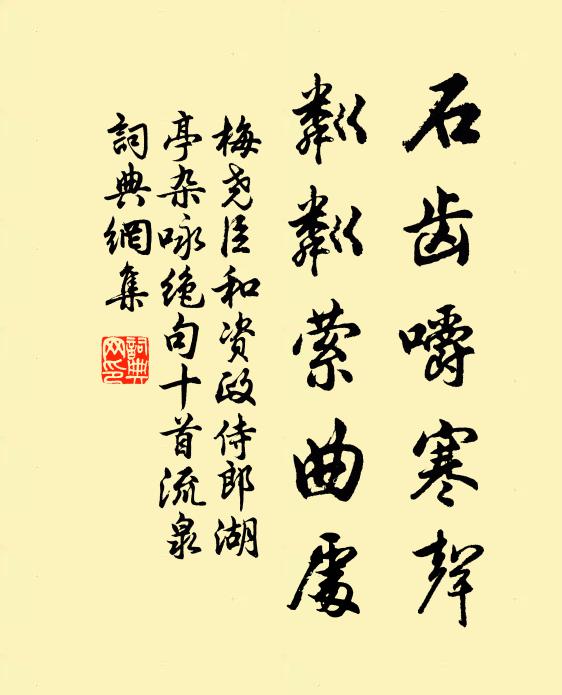 石齿嚼寒聲
粼粼萦曲處
梅尧臣和资政侍郎湖
亭杂咏绝句十首流泉
詞典網集
詞典
网印